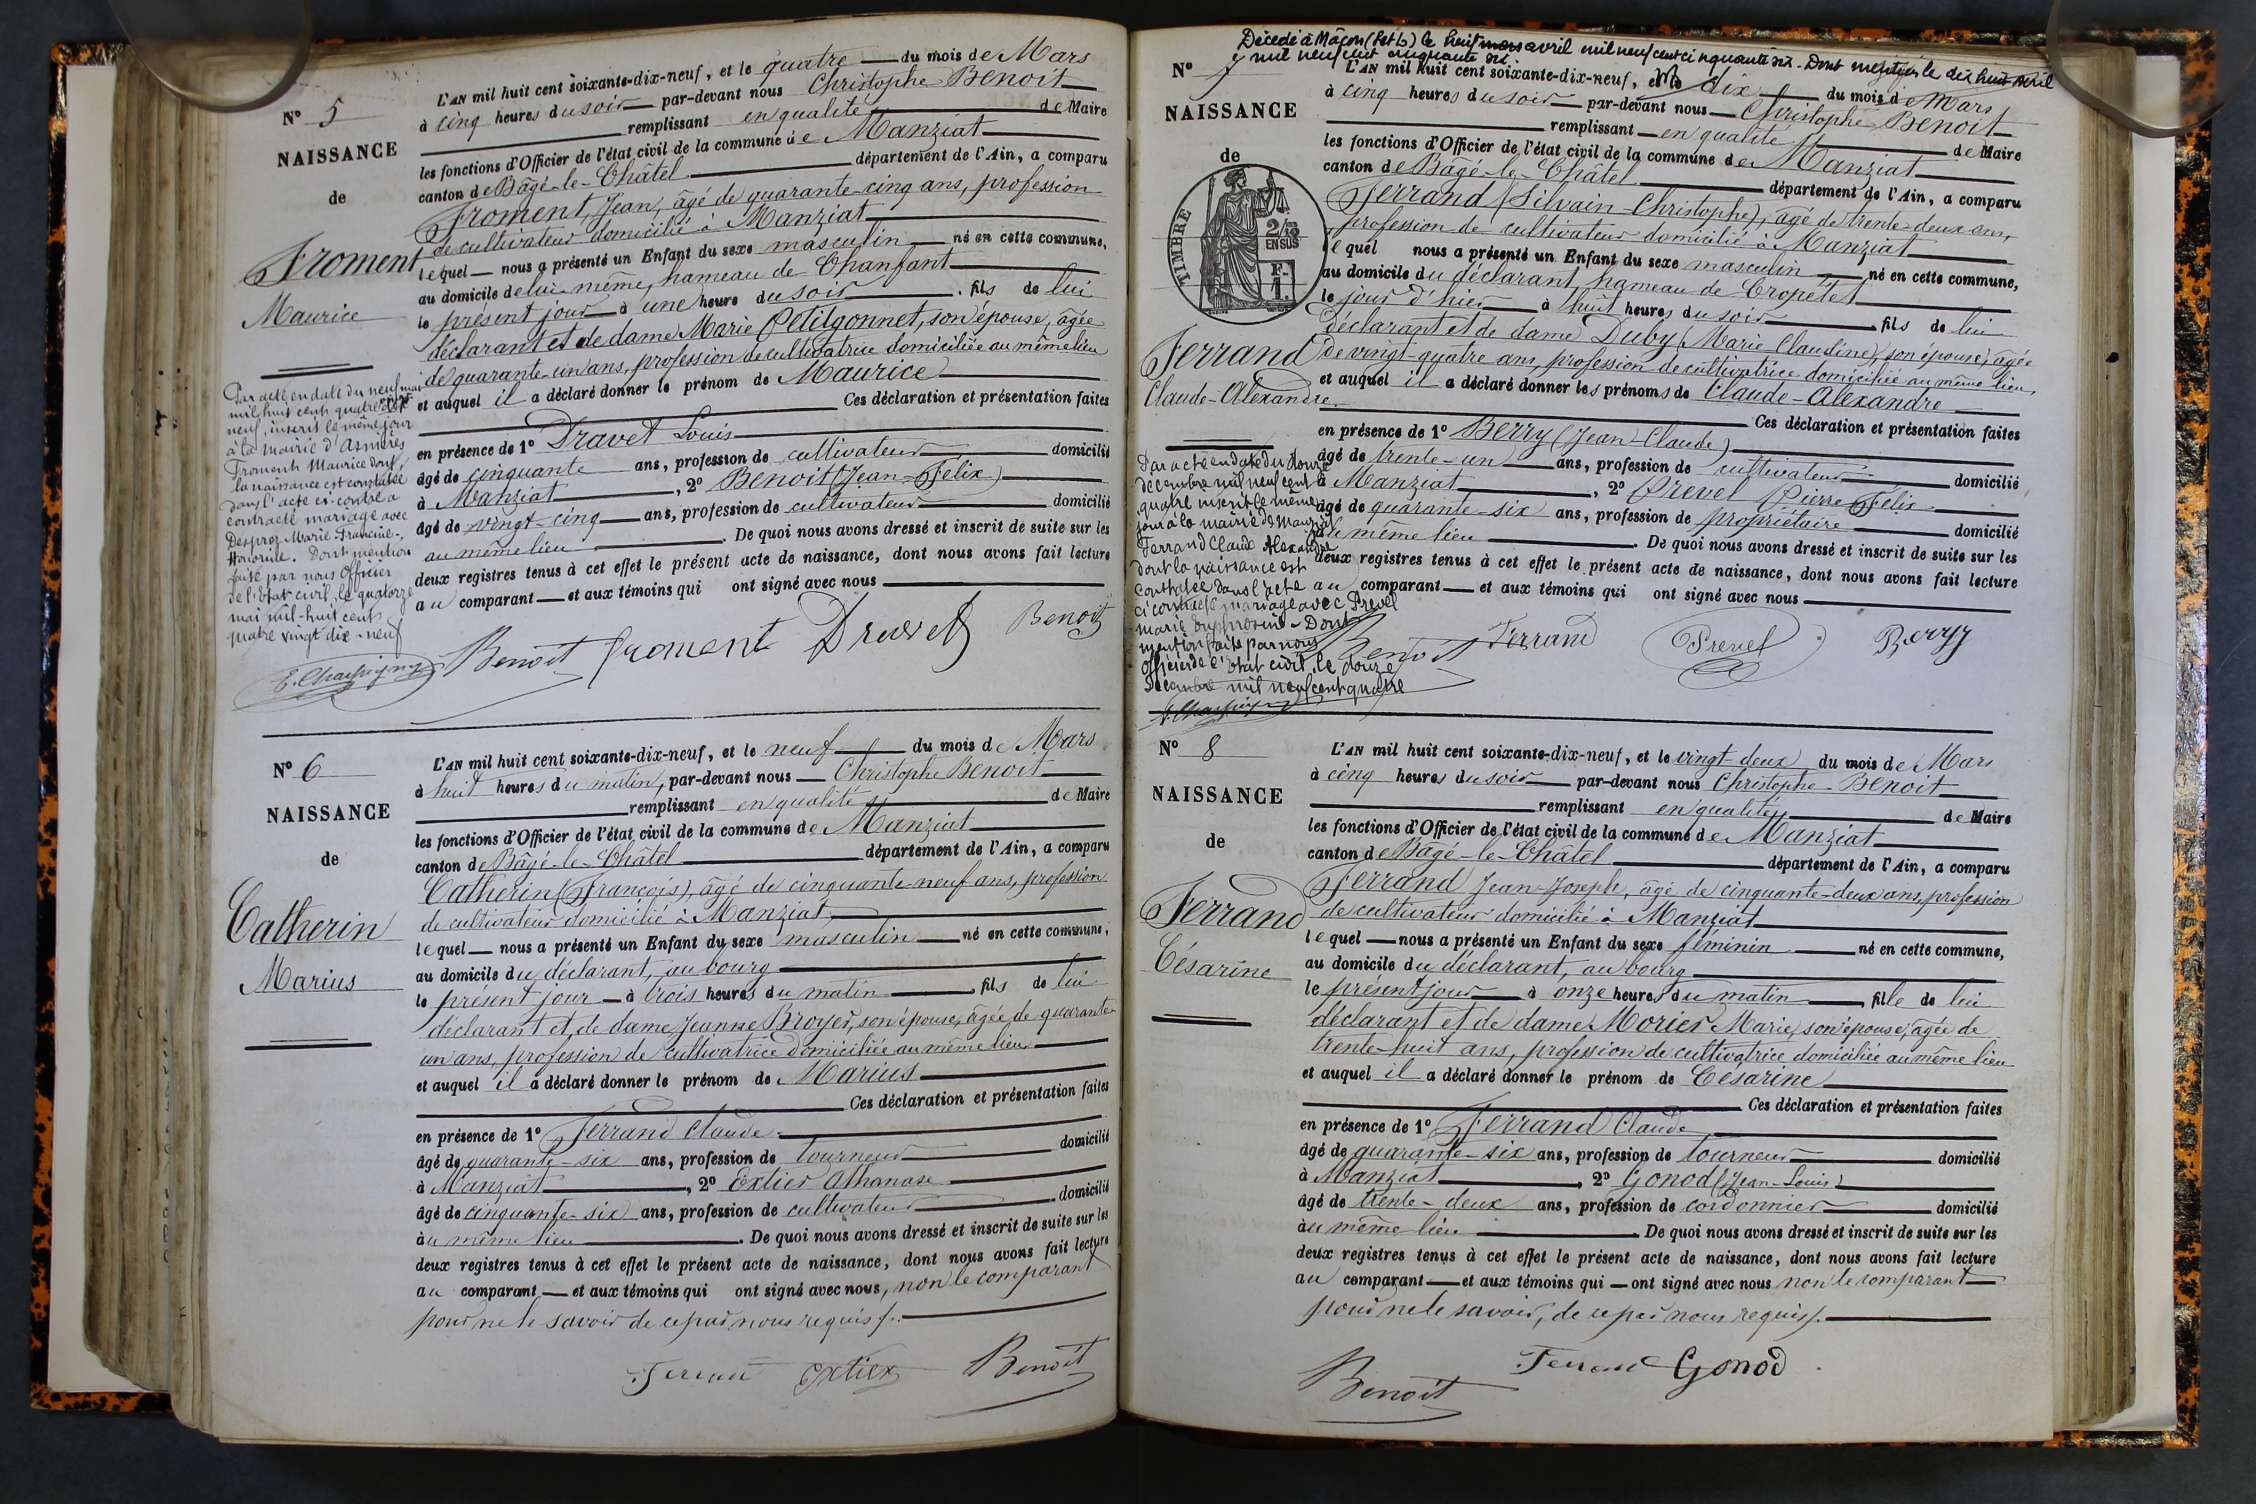 N° 5
NAISSANCE
de
Froment
Maurice
L'AN mil huit cent soixante-dix-neuf, et le quatre du mois de Mars
à cinq heures du soir par-devant nous Christophe Benoit
remplissant en qualité de Maire
les fonctions d'Officier de l'état civil de la commune de Manziat
canton de Bâgé-le-Châtel département de l'Ain, a comparu
Froment, Jean, âgé de quarante-cinq ans, profession
de cultivateur domicilié à Manziat
lequel nous a présenté un Enfant du sexe masculin né en cette commune,
au domicile de lui-même, hameau de Chanfant
le présent jour à une heure du soir, fils de lui
déclarant et de dame Marie Petitgonnet, son épouse, âgée
de quarante-un ans, profession de cultivatrice domiciliée au même lieu
et auquel il a déclaré donner le prénom de Maurice
Ces déclaration et présentation faites
en présence de 1° Dravet Louis
âgé de cinquante ans, profession de cultivateur domicilié
à Manziat, 2° Benoit (Jean-Félix)
âgé de vingt-cinq ans, profession de cultivateur domicilié
au même lieu. De quoi nous avons dressé et inscrit de suite sur les
deux registres tenus à cet effet le présent acte de naissance, dont nous avons fait lecture
au comparant et aux témoins qui ont signé avec nous
Par acte en date du neuf mai
mil huit cent quatre vingt dix
neuf, inscrit le même jour
à la mairie d'Asnières
Froment Maurice dont
la naissance est constatée
dans l'acte ci-contre a
contracté mariage avec
Desproz Marie Francine-
Honorine. Dont mention
faite par nous Officier
de l'état civil, le quatorze
mai mil-huit cent
quatre vingt dix-neuf
Benoit Froment Dravet Benoit
N° 6
NAISSANCE
de
Catherin
Marius
L'AN mil huit cent soixante-dix-neuf, et le neuf du mois de Mars
à huit heures du matin, par-devant nous Christophe Benoit
remplissant en qualité de Maire
les fonctions d'Officier de l'état civil de la commune de Manziat
canton de Bâgé-le-Châtel département de l'Ain, a comparu
Catherin (François), âgé de cinquante-neuf ans, profession
de cultivateur domicilié à Manziat
lequel nous a présenté un Enfant du sexe masculin né en cette commune,
au domicile du déclarant, au bourg
le présent jour à trois heures du matin, fils de lui
déclarant et de dame Jeanne Broyer, son épouse, âgée de quarante-
un ans, profession de cultivatrice domiciliée au même lieu
et auquel il a déclaré donner le prénom de Marius
Ces déclaration et présentation faites
en présence de 1° Ferrand Claude
âgé de quarante-six ans, profession de tourneur domicilié
à Manziat, 2° Extier Athanase
âgé de cinquante-six ans, profession de cultivateur domicilié
au même lieu. De quoi nous avons dressé et inscrit de suite sur les
deux registres tenus à cet effet le présent acte de naissance, dont nous avons fait lecture
au comparant et aux témoins qui ont signé avec nous, non le comparant
pour ne le savoir de ce par nous requis.
Ferrand Extier Benoit
Décédé à Mâcon (S et L) le huit mars avril mil neuf cent cinquante six. Dont mention le dix huit avril
mil neuf cent cinquante six.
N° 7
NAISSANCE
de
TIMBRE
2/10
EN SUS
F.
1.
Ferrand
Claude-Alexandre.
L'AN mil huit cent soixante-dix-neuf, et le dix du mois de Mars
à cinq heures du soir par-devant nous Christophe Benoit
remplissant en qualité de Maire
les fonctions d'Officier de l'état civil de la commune de Manziat
canton de Bâgé-le-Châtel département de l'Ain, a comparu
Ferrand (Silvain-Christophe), âgé de trente-deux ans,
profession de cultivateur domicilié à Manziat
lequel nous a présenté un Enfant du sexe masculin né en cette commune,
au domicile du déclarant, hameau de Cropétet
le jour d'hier à huit heures du soir, fils de lui
déclarant et de dame Duby (Marie Claudine), son épouse, âgée
de vingt-quatre ans, profession de cultivatrice domiciliée au même lieu
et auquel il a déclaré donner les prénoms de Claude-Alexandre
Ces déclaration et présentation faites
en présence de 1° Berry (Jean-Claude)
âgé de trente-un ans, profession de cultivateur domicilié
à Manziat, 2° Prevel (Pierre-Félix
âgé de quarante-six ans, profession de propriétaire domicilié
au même lieu. De quoi nous avons dressé et inscrit de suite sur les
deux registres tenus à cet effet le présent acte de naissance, dont nous avons fait lecture
au comparant et aux témoins qui ont signé avec nous
Par acte en date du douze
décembre mil neuf cent
quatre inscrit le même
jour à la mairie de Manziat
Ferrand Claude Alexandre
dont la naissance est
constatée dans l'acte
ci contre mariage avec Prevel
Marie - Dont
mention faite par nous
officier de l'état civil, le douze
décembre mil neuf cent quatre
Benoit Ferrand Prevel Berry
N° 8
NAISSANCE
de
Ferrand
Césarine
L'AN mil huit cent soixante-dix-neuf, et le vingt-deux du mois de Mars
à cinq heures du soir par-devant nous Christophe Benoit
remplissant en qualité de Maire
les fonctions d'Officier de l'état civil de la commune de Manziat
canton de Bâgé-le-Châtel département de l'Ain, a comparu
Ferrand Jean-Joseph, âgé de cinquante-deux ans, profession
de cultivateur domicilié à Manziat
lequel nous a présenté un Enfant du sexe féminin né en cette commune,
au domicile du déclarant, au bourg
le présent jour à onze heures du matin, fille de lui
déclarant et de dame Morier Marie, son épouse, âgée de
trente-huit ans, profession de cultivatrice domiciliée au même lieu
et auquel il a déclaré donner le prénom de Césarine
Ces déclaration et présentation faites
en présence de 1° Ferrand Claude
âgé de quarante-six ans, profession de tourneur domicilié
à Manziat, 2° Gonod (Jean-Louis)
âgé de trente-deux ans, profession de cordonnier domicilié
au même lieu. De quoi nous avons dressé et inscrit de suite sur les
deux registres tenus à cet effet le présent acte de naissance, dont nous avons fait lecture
au comparant et aux témoins qui ont signé avec nous non le comparant
pour ne le savoir, de ce par nous requis.
Benoit Ferrand Gonod